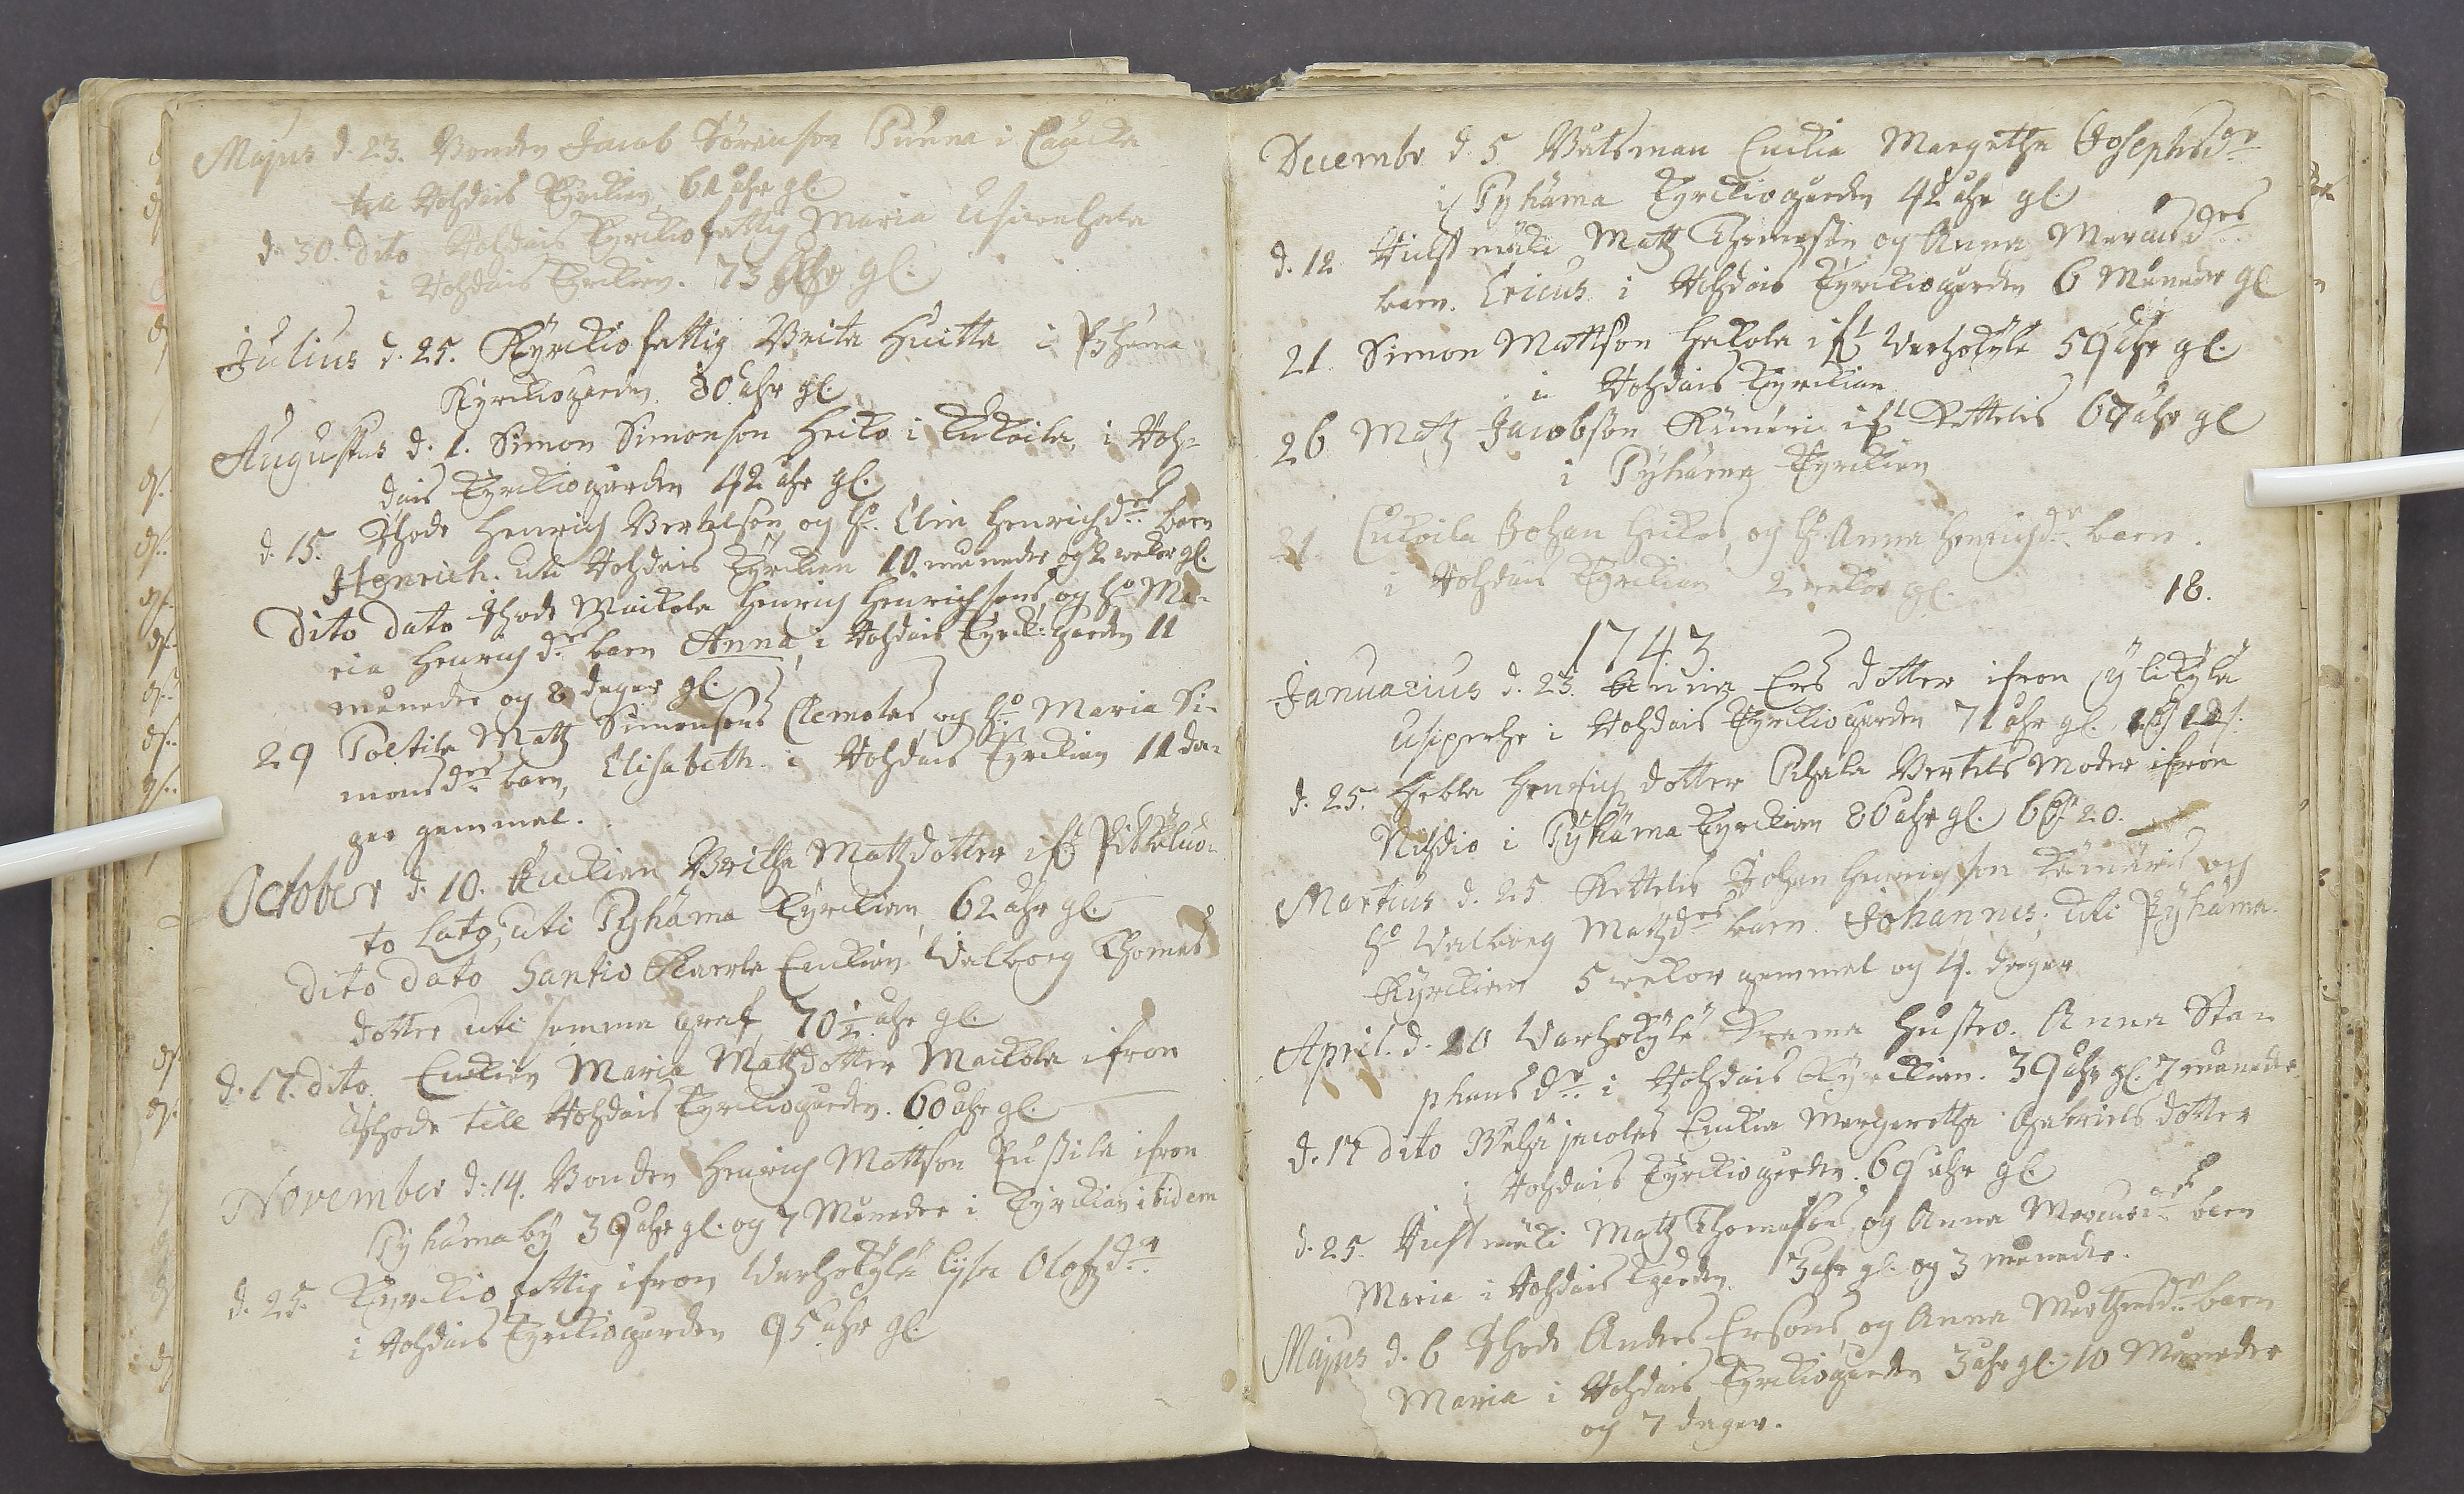 Majus d. 23. Bonden Jacob Sörenson Punna i Caucka
till Rohdais Kyrckian 61 åhr gl.
d. 30. Dito Rohdais Kyrckiofattig Maria Usiwehala
i Rohdais Kyrckian. 73 åhr gl.
Julius d. 25. Kyrckiofattig Brita Huitta i Pyhäma
Kyrckiogården. 80 åhr gl.
Augustus d. 1. Simon Simonson Heiko i Kukoila, i Roh-
dais Kyrckiogården 42 åhr gl.
d. 15. Ihode Henrich Bertelson og h. Elin Henrichdrs barn
Henrich. uti Rohdais Kyrckian 10. månader og 2 wekor gl.
Dito dato Ihode Maikola Henrich Henrichsons og ho Ma-
ria Henrich drs barn Anna, i Rohdais Kyrck:gården 11
månader og 8 dagar gl.
29 Poltila Matz Simonsons Clemolas og ho Maria Si-
monsdrs barn, Elisabeth i Rohdais Kyrckian 11 da-
gar gammal.
October d. 10. Enckian Britha Matzdotter ifr Pitkäluo-
to Lato, uti Pyhäma Kyrckian, 62 åhr gl.
Dito dato, Santio Kaerla Enckian Walborg Thomas
dotter uti samma graf 70 1/2 åhr gl.
d. 17. dito. Enckian Maria Matzdotter Maikola ifron
Ihode till Rohdais Kyrckiogården. 60 åhr gl.
November d: 14. Bonden Henrich Mattson Pussila ifron
Pyhämaby 39 åhr gl. og 7 Månader i Kyrckian ibidem
d. 25. Kyrckiofattig ifron Warhokylä Lisa Olofzdr
i Rohdais Kyrckiogården 95 åhr gl.
Decembr d 5 Båtsman Enckia Margetha Josephsdr
i Pyhäma Kyrckiogården 42 åhr gl.
d. 12 Matz Thomason og Anna Marcusdrs
barn. Ericus i Rohdais Kyrckiogården 6 Månader gl
21. Simon Mattson Hakola ifr Warhokylä 59 åhr gl.
i Rohdais Kyrckian
26 Matz Jacobson Kämäri ifr Kettelis 67 åhr gl
i Pyhäma Kyrckian
21. Cukoila Johan Heikos, og h. Anna Henrichdr barn.
i Rohdais Kyrckian 2 wekor gl.
18.
1743.
Januarius d. 23. Anna Ers dotter ifron Ylikylä
Usiperhe i Rohdais Kyrckiogården 71 åhr gl.
d. 25. Hebla Henrich dotter Pihala Bertels Moder ifron
Nihdio i Pyhäma Kyrckian 86 åhr gl. 20.
Martius d. 25 Kettelis Johan Henrichson Kämäris og
ho Walborg Matzdrs barn Johannes. uti Pyhäma
Kyrckian 5 wekor gammal og 4. dagar
April. d. 10 Warhokylä Krama Hustro. Anna Sta-
phansdr i Rohdais Kyrckian. 39 åhr gl. 7 månader
d. 17 dito Enckia Margaretha Gabriels dotter
i Rohdais Kyrckiogården. 69 åhr gl.
d. 25. Matz Thomasons og Anna Marcusdrs barn
Maria i Rohdais Kgården 3 åhr gl. og 3 månader.
Majus d. 6 Ihode Anders Ersons og Anna Mårthensdr barn
Maria i Rohdais Kyrckiogården 3 åhr gl. 10 Månader
og 7 dagar.